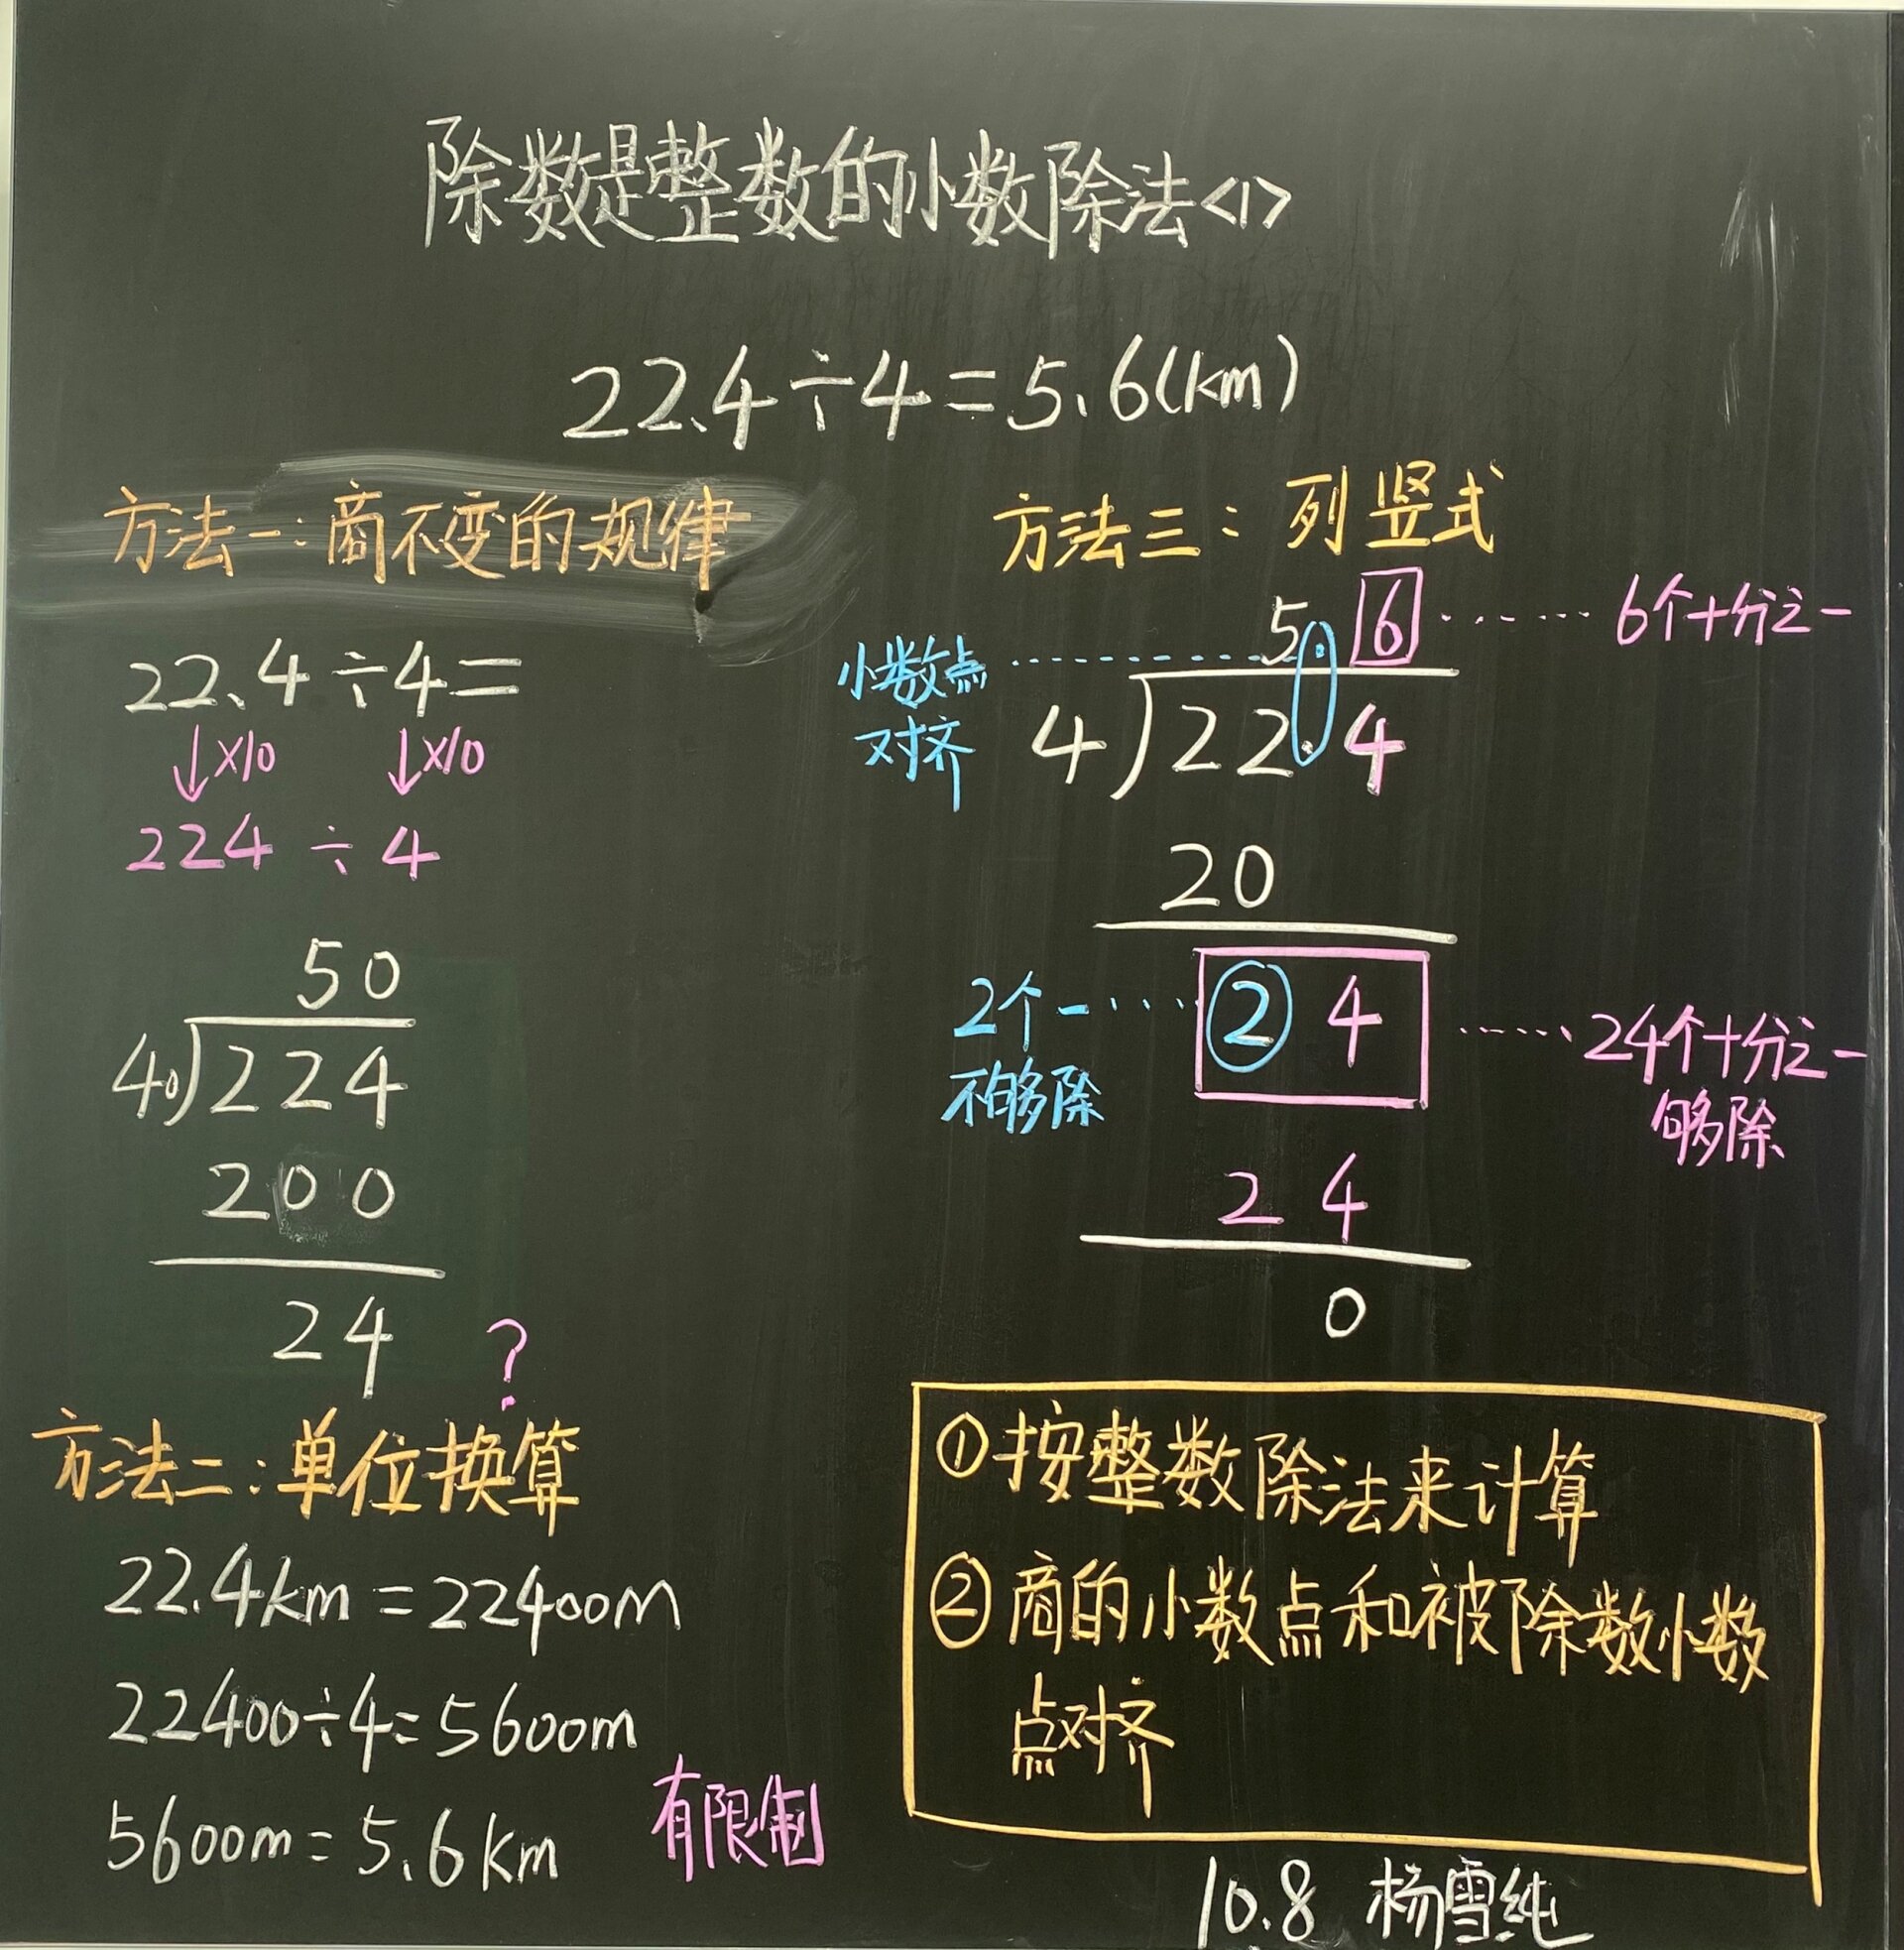 除数是整数的小数除法<1>
22.4÷4=5.6(km)
方法一:商不变的规律
22.4÷4=
↓×10 ↓×10
224÷4
50
40)224
200
24
?
方法二:单位换算
22.4km=22400m
22400÷4=5600m
5600m=5.6km
有限制
方法三:列竖式
5.6……6个十分之一
小数点
对齐
4)22.4
20
2个一……24……24个十分之一
不够除 够除
24
0
①按整数除法来计算
②商的小数点和被除数小数
点对齐
10.8 杨雪纯